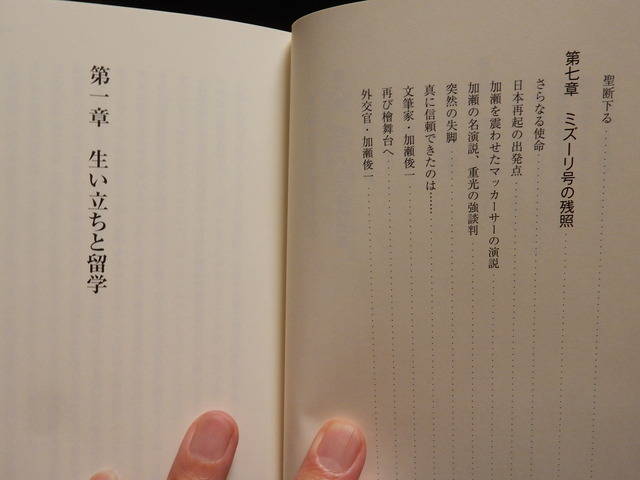 聖断下る
第七章 ミズーリ号の残照
さらなる使命
日本再起の出発点
加瀬を震わせたマッカーサーの演説
加瀬の名演説、重光の強談判
突然の失脚
真に信頼できたのは……
文筆家・加瀬俊一
再び檜舞台へ
外交官・加瀬俊一
第一章 生い立ちと留学